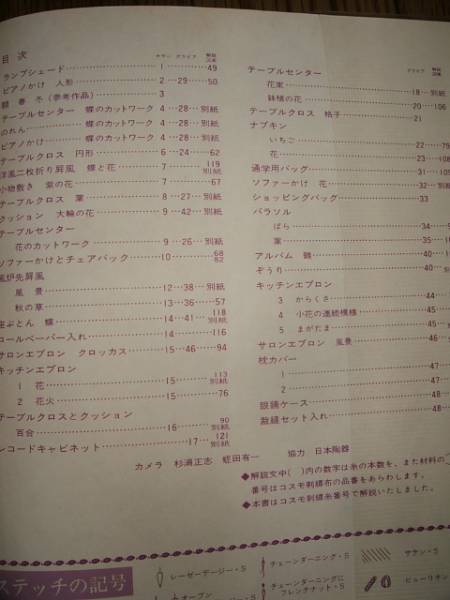 目次
カラー グラビア 解説図案
ランプシェード 1 49
ピアノかけ 人形 2 29 50
春 冬(参考作品) 3
テーブルセンター 蝶のカットワーク 4 28 別紙
のれん 蝶のカットワーク 4 28 別紙
ピアノかけ 蝶のカットワーク 4 28 別紙
テーブルクロス 円形 6 24 62
洋風二枚折り屏風 蝶と花 7 119別紙
小物敷き 紫の花 7 67
テーブルクロス 葉 8 27 別紙
クッション 大輪の花 9 42 別紙
テーブルセンター
花のカットワーク 9 26 別紙
ソファーかけとチェアバック 10 68 82
風炉先屏風
風景 12 38 別紙
秋の草 13 36 57
座ぶとん 蝶 14 41 118別紙
ロールペーパー入れ 14 116
サロンエプロン クロッカス 15 46 94
キッチンエプロン
1 花 15 113別紙
2 花火 15 76
テーブルクロスとクッション
百合 16 90別紙
レコードキャビネット 17 121別紙
グラビア 解説図案
テーブルセンター
花束 18 別紙
鉢植の花 20 106
テーブルクロス 格子 21
ナプキン
いちご 22
花 23 108
通学用バッグ 31
ソファーかけ 花 32 別紙
ショッピングバッグ 33
パラソル
ばら 34
葉 35
アルバム 鶴 40
ぞうり 40
キッチンエプロン
3 からくさ 44
4 小花の連続模様 44
5 まがたま 45
サロンエプロン 風景 46
枕カバー
1 47
2 47
眼鏡ケース 48
裁縫セット入れ 48
カメラ 杉浦正志 蛭田有一 協力 日本陶器
◆解説文中( )内の数字は糸の本数を、また材料の
番号はコスモ刺繍布の品番をあらわします。
◆本書はコスモ刺繍糸番号で解説いたしました。
ステッチの記号
レーゼーデージー・S
オープン
チェーンダーニング・S
チェーンダーニングに
フレンチナット・S
サテン・S